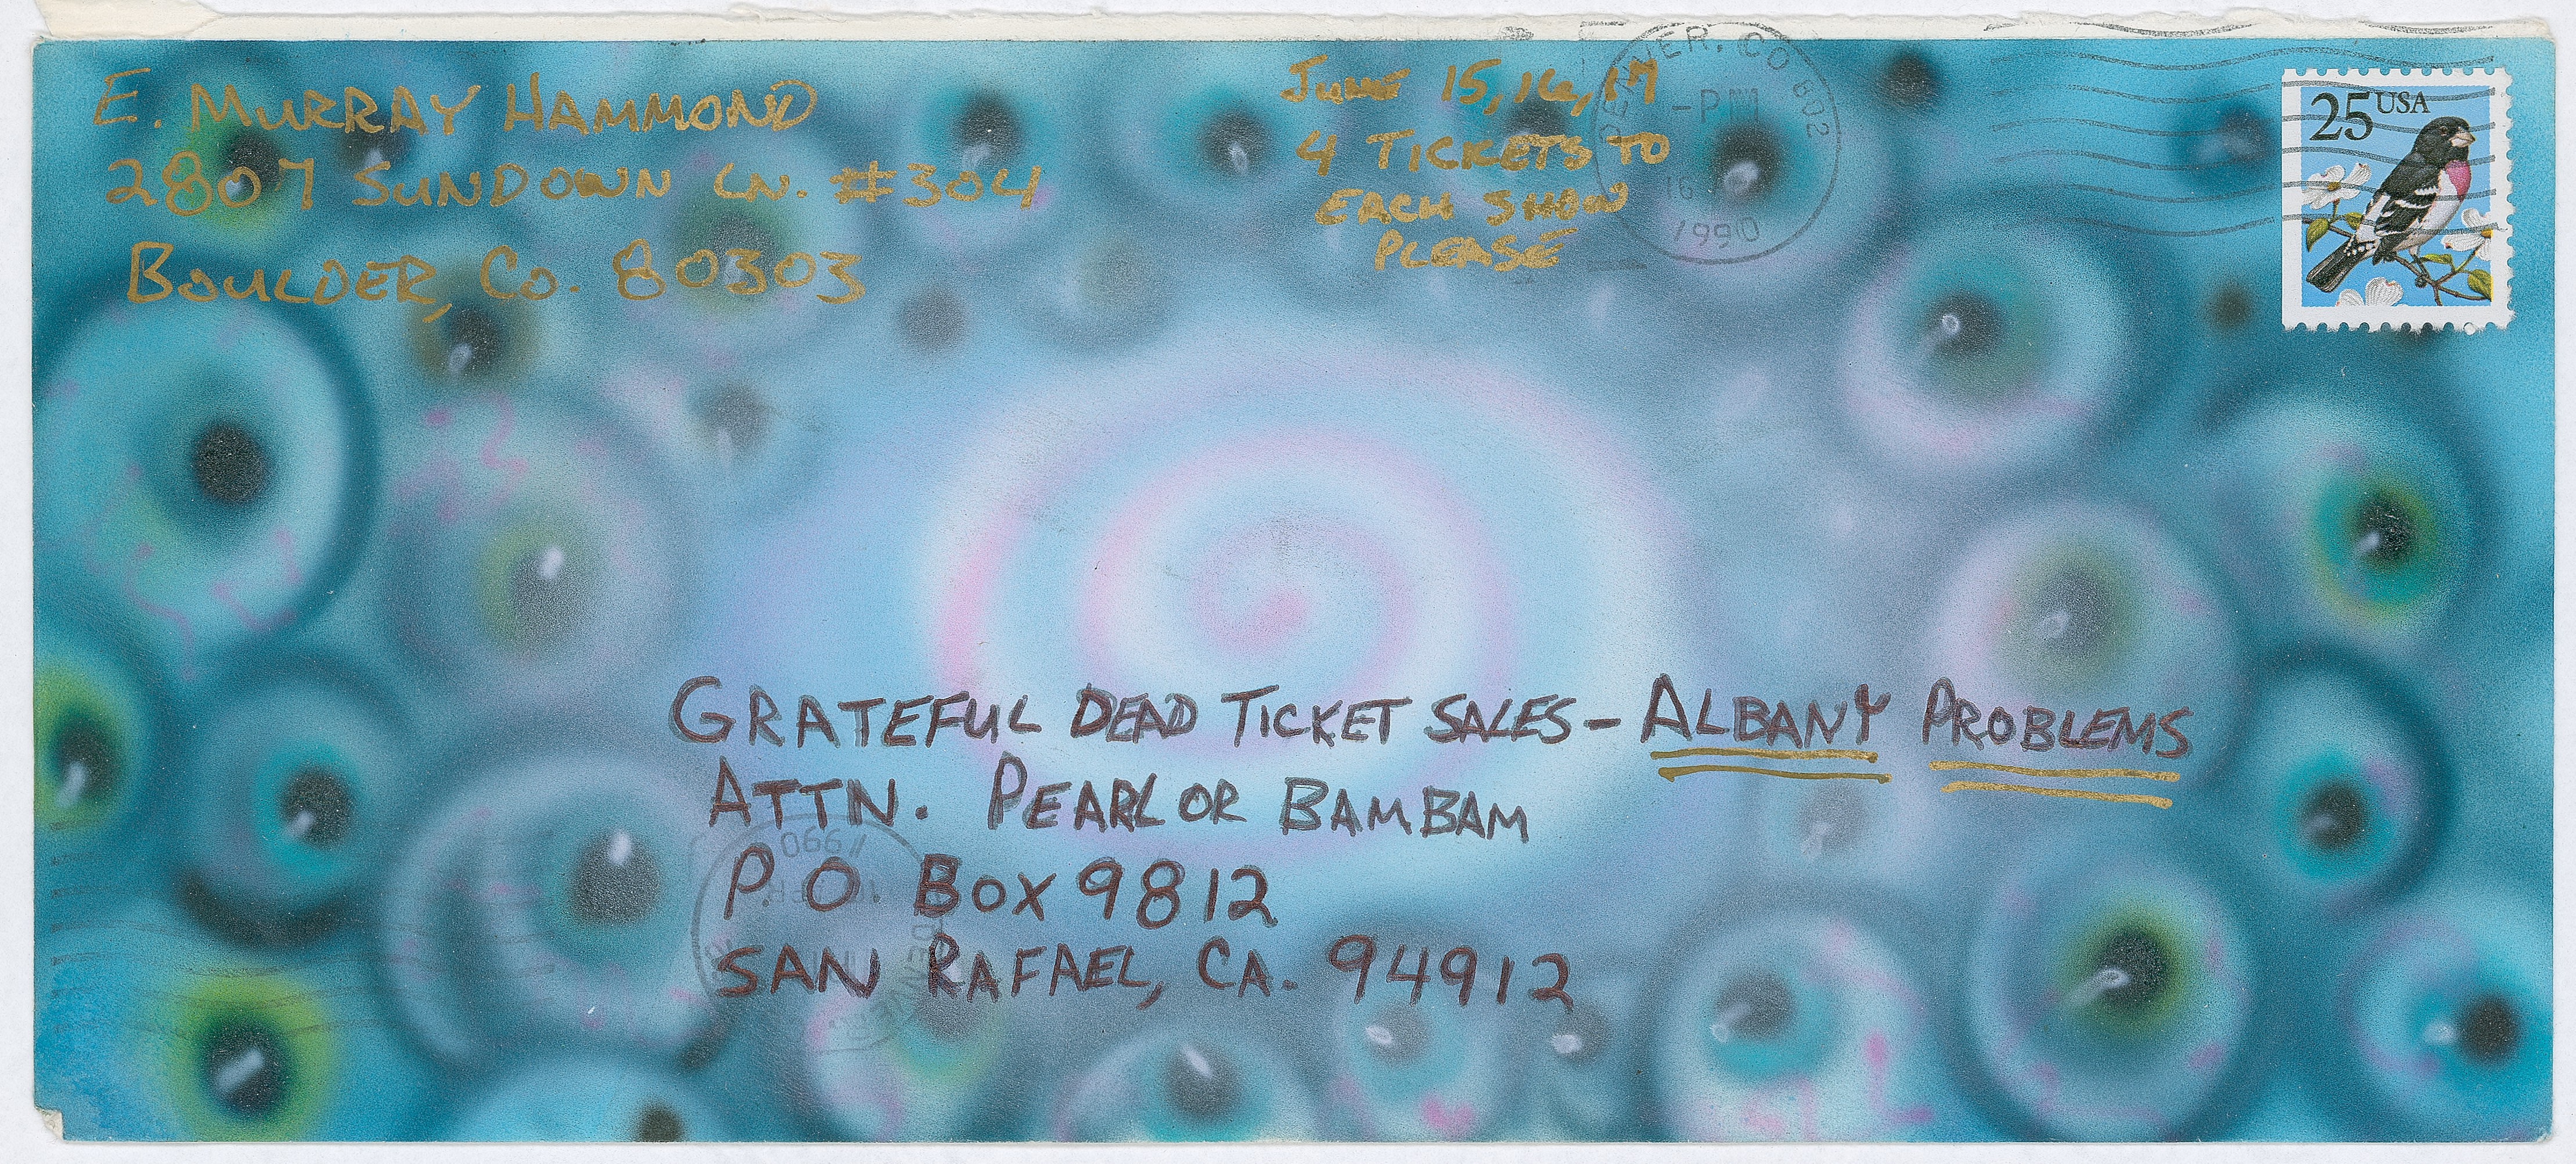 E. MURRAY HAMMOND
2807 SUNDOWN LN. #304
BOULDER, CO. 80303
JUNE 15, 16, 17
4 TICKETS TO
EACH SHOW
PLEASE
DENVER, CO 802
PM
16
1990
25 USA
GRATEFUL DEAD TICKET SALES - ALBANY PROBLEMS
ATTN. PEARL OR BAMBAM
P.O. BOX 9812
SAN RAFAEL, CA. 94912
1990
DENVER